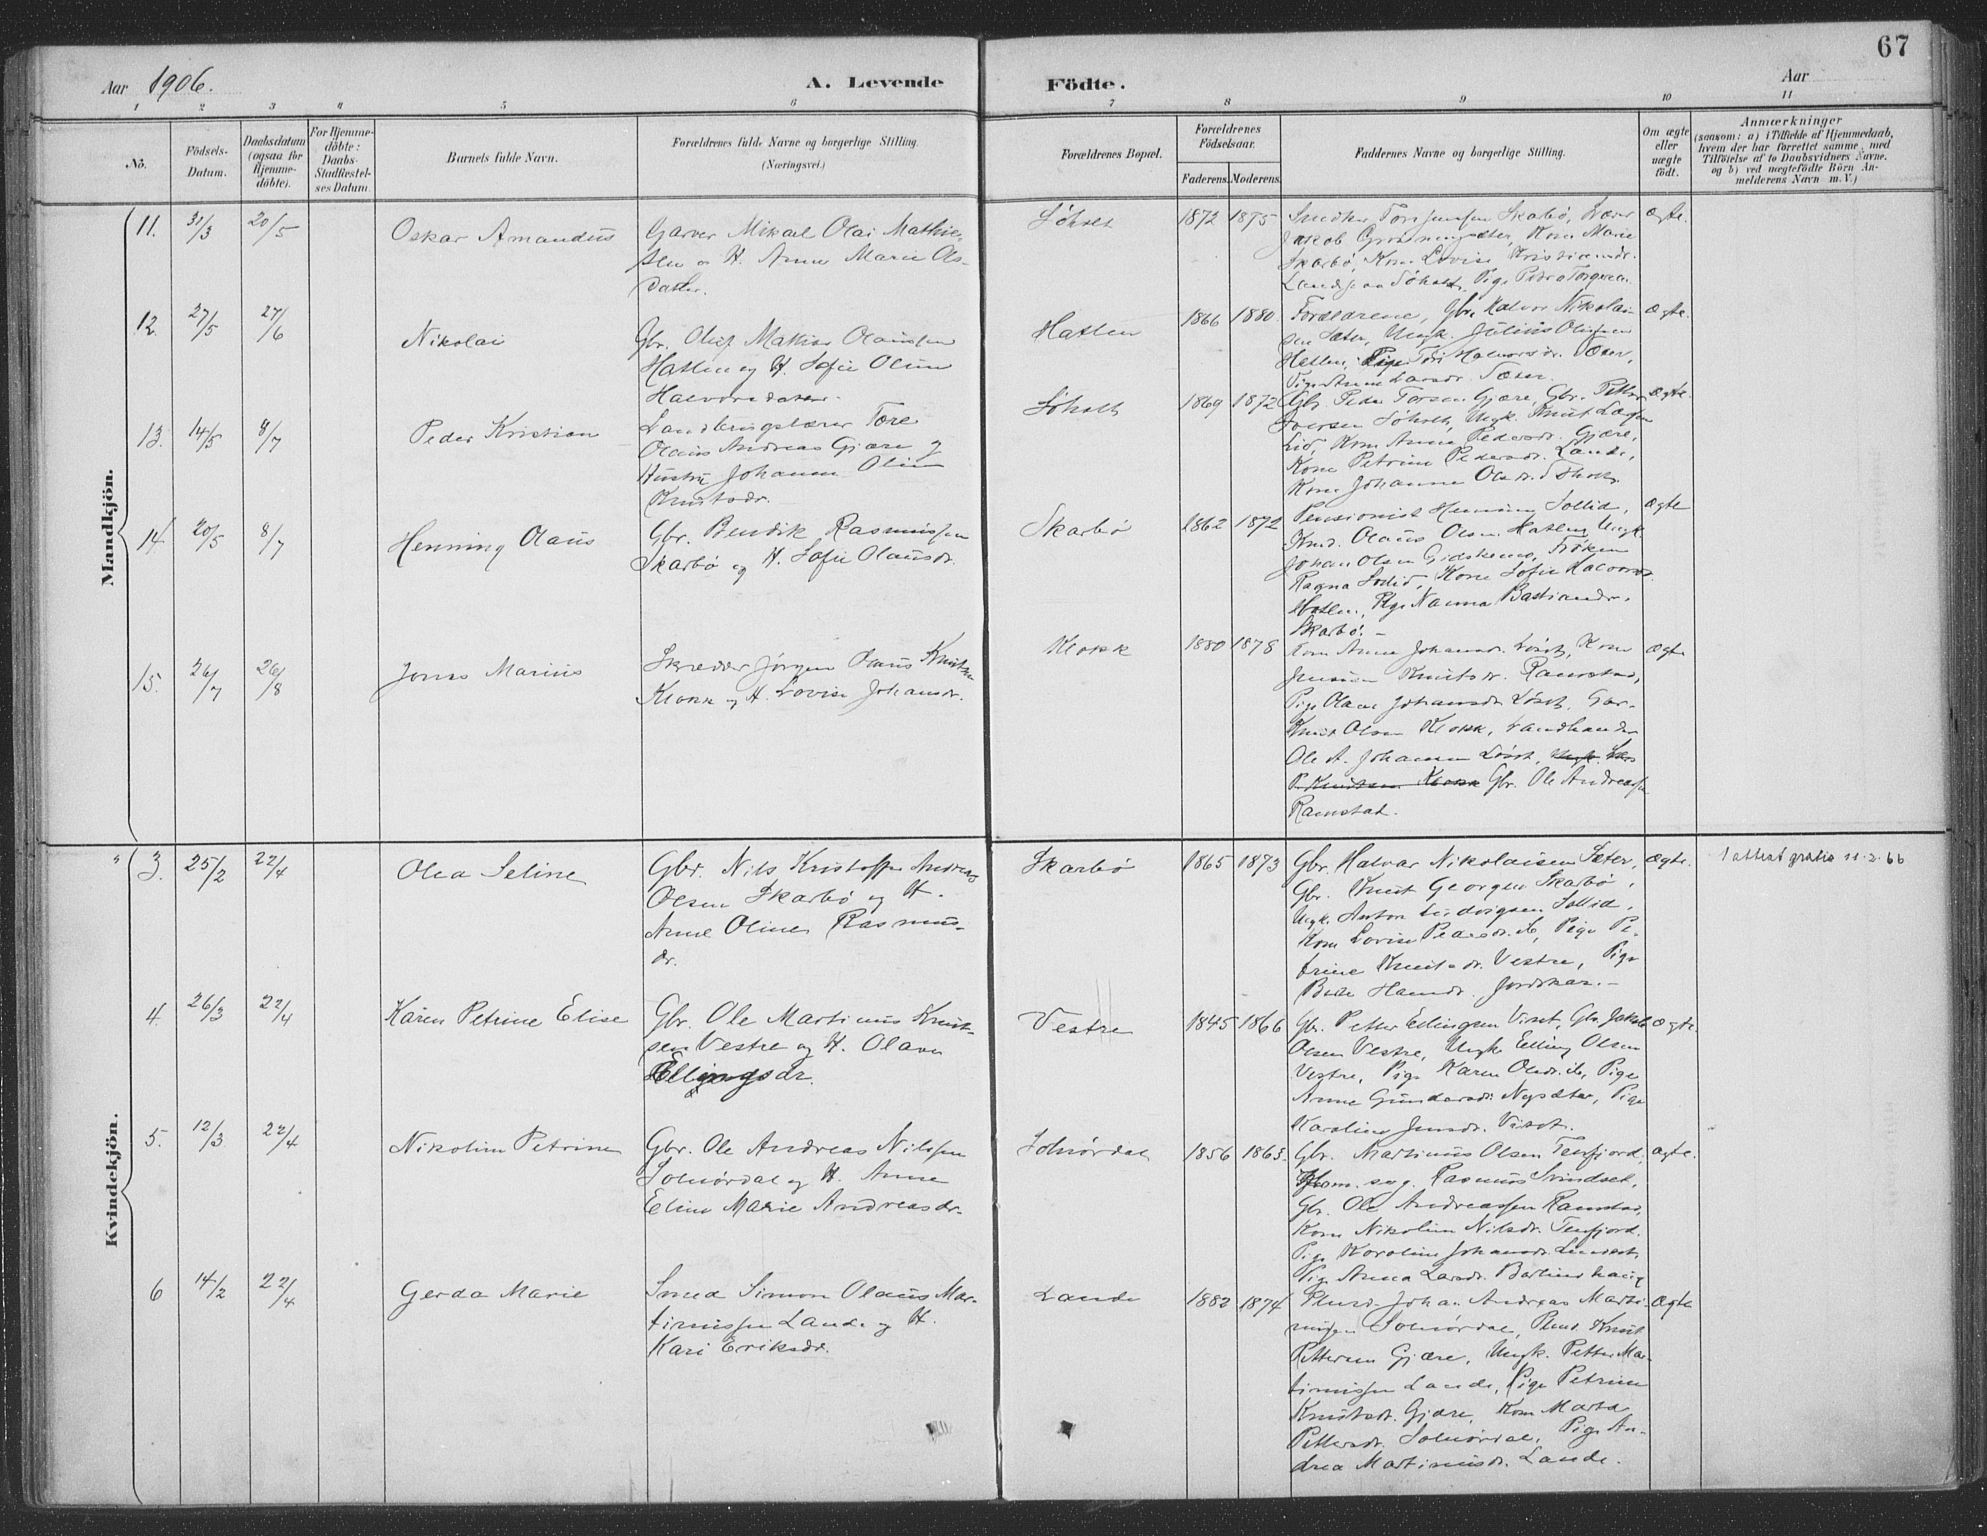 67
Aar 1906.
A. Levende Födte.
Aar
1 2 3 4 5 6 7 8 9 10 11
No.
Födsels-Datum.
Daabsdatum (ogsaa for Hjemme-döbte).
For Hjemme-döbte: Daabs-Stadfæstel-ses Datum.
Barnets fulde Navn.
Forældrenes fulde Navne og borgerlige Stilling.
(Næringsvei.)
Forældrenes Bopæl.
Forældrenes Födselsaar.
Faderens. Moderens.
Faddernes Navne og borgerlige Stilling.
Om ægte eller uægte födt.
Anmærkninger
(saasom: a) i Tilfælde af Hjemmedaab,
hvem der har forrettet samme, med
Tilföielse af to Daabsvidners Navne.
og b) ved uægtefödte Börn An-
melderens Navn m. V.)
Mandkjön.
11. 31/3 20/5 Oskar Amandus
Garver Mikael Olai Mathie-
sen o H. Anne Marie Ols-
datter.
Søholt 1872 1875
Jakob Grønningsæter, Kone Marie
Skarbø, Kone Lovise Kristiansdr.
ægte.
12. 27/5 27/6 Nikolai
Gbr. Oluf Mathias Olaussen
Hatlen og H. Sofie Oline
Halvorsdatter.
Hatlen 1866 1880.
Forældrene, Gbr. Halvor Nikolai-
sen Sæter, Ungk. Julius Olufsen
Hatlen, Pige Halvorsdr. Sæter,
Pige Anne Larsdr. Sæter.
ægte.
13. 14/5 8/7 Peder Kristian
Landbrugslærer Tore
Olaus Andreas Gjære og
Hustru Johanne Oline
Knutsdr.
Søholt 1869 1872
Gbr. Peder Torsen Gjære, Gbr. Petter
Iversen Søholt, Ungk. Knut
Lid, Kone Anne Pedersdr. Gjære,
Kone Petrine Pedersdr. Lande,
Kone Johanne Olsdr. Søholt.
ægte.
14. 20/5 8/7 Henning Olaus
Gbr. Bendik Rasmussen
Skarbø og H. Sofie Olausdr.
Skarbø 1862 1872
Pensionist Henning Sollid,
Olaus Olsen Hatlen, Ungk.
Johan Olsen Gidskemo, Frøken
Ragna Sollid, Kone Sofie Halvorsdr.
Hatlen, Pige Nanna Bastiansdr.
Skarbø. -
ægte
15. 26/7 26/8 Jonas Marius
Skredder Jørgen Olaus Knutsen
Klokk og H. Lovise Johansdr.
Klokk 1880 1878
Kone Anne Johansdr. Løset, Kone
Knutsdr. Ramstad,
Pige Olane Johansdr. Løset, Gbr.
Knut Olsen Klokk, Landhandler
Ole A. Johansen Løset, Ungk.
P. Knutsen Klokk Gbr. Ole Andreassen
Ramstad.
ægte
Kvindekjön.
3. 25/2 22/4 Olea Seline
Gbr. Nils Kristoffer Andreas
Olsen Skarbø og H.
Anne Oline Rasmus-
dr.
Skarbø 1865 1873
Gbr. Halvar Nikolaisen Sæter,
Gbr. Knut Georgsen Skarbø,
Ungk. Anton Ludvigsen Sollid,
Kone Lovise Pedersdr. ib, Pige Pe-
trine Knutsdr. Vestre, Pige
Hansdr. Jordskar. -
ægte.
1 attest gratis 11.2.66
4. 26/3 22/4 Karen Petrine Elise
Gbr. Ole Martinus Knut-
sen Vestre og H. Olava
Ellingsdr.
Vestre 1845 1866
Gbr. Petter Ellingsen Viset, Gbr. Jakob
Olsen Vestre, Ungk. Elling Olsen
Vestre, Pige Karen Olsdr. ib, Pige
Anne Gundersdr. Nysæter, Pige
Karoline Jensdr. Viset.
ægte.
5. 12/3 22/4 Nikoline Petrine
Gbr. Ole Andreas Nilssen
Solnørdal og H. Anne
Eline Marie Andreasdr.
Solnørdal 1856 1863.
Gbr. Martinus Olsen Tenfjord,
Rasmus Svindset,
Gbr. Ole Andreassen Ramstad,
Kone Nikoline Nilsdr. Tenfjord.
Pige Karoline Johansdr.
Pige Anna Larsdr.
ægte.
6 14/2 22/4 Gerda Marie
Smed Simon Olaus Mar-
tinussen Lande og H.
Kari Eriksdr.
Lande 1882 1874
Johan Andreas Marti-
nussen Solnørdal, Knut
Pettersen Gjære, Ungk. Petter Mar-
tinussen Lande, Pige Petrine
Knutsdr. Gjære, Kone Marta
Pettersdr. Solnørdal, Pige An-
drea Martinusdr. Lande.
ægte